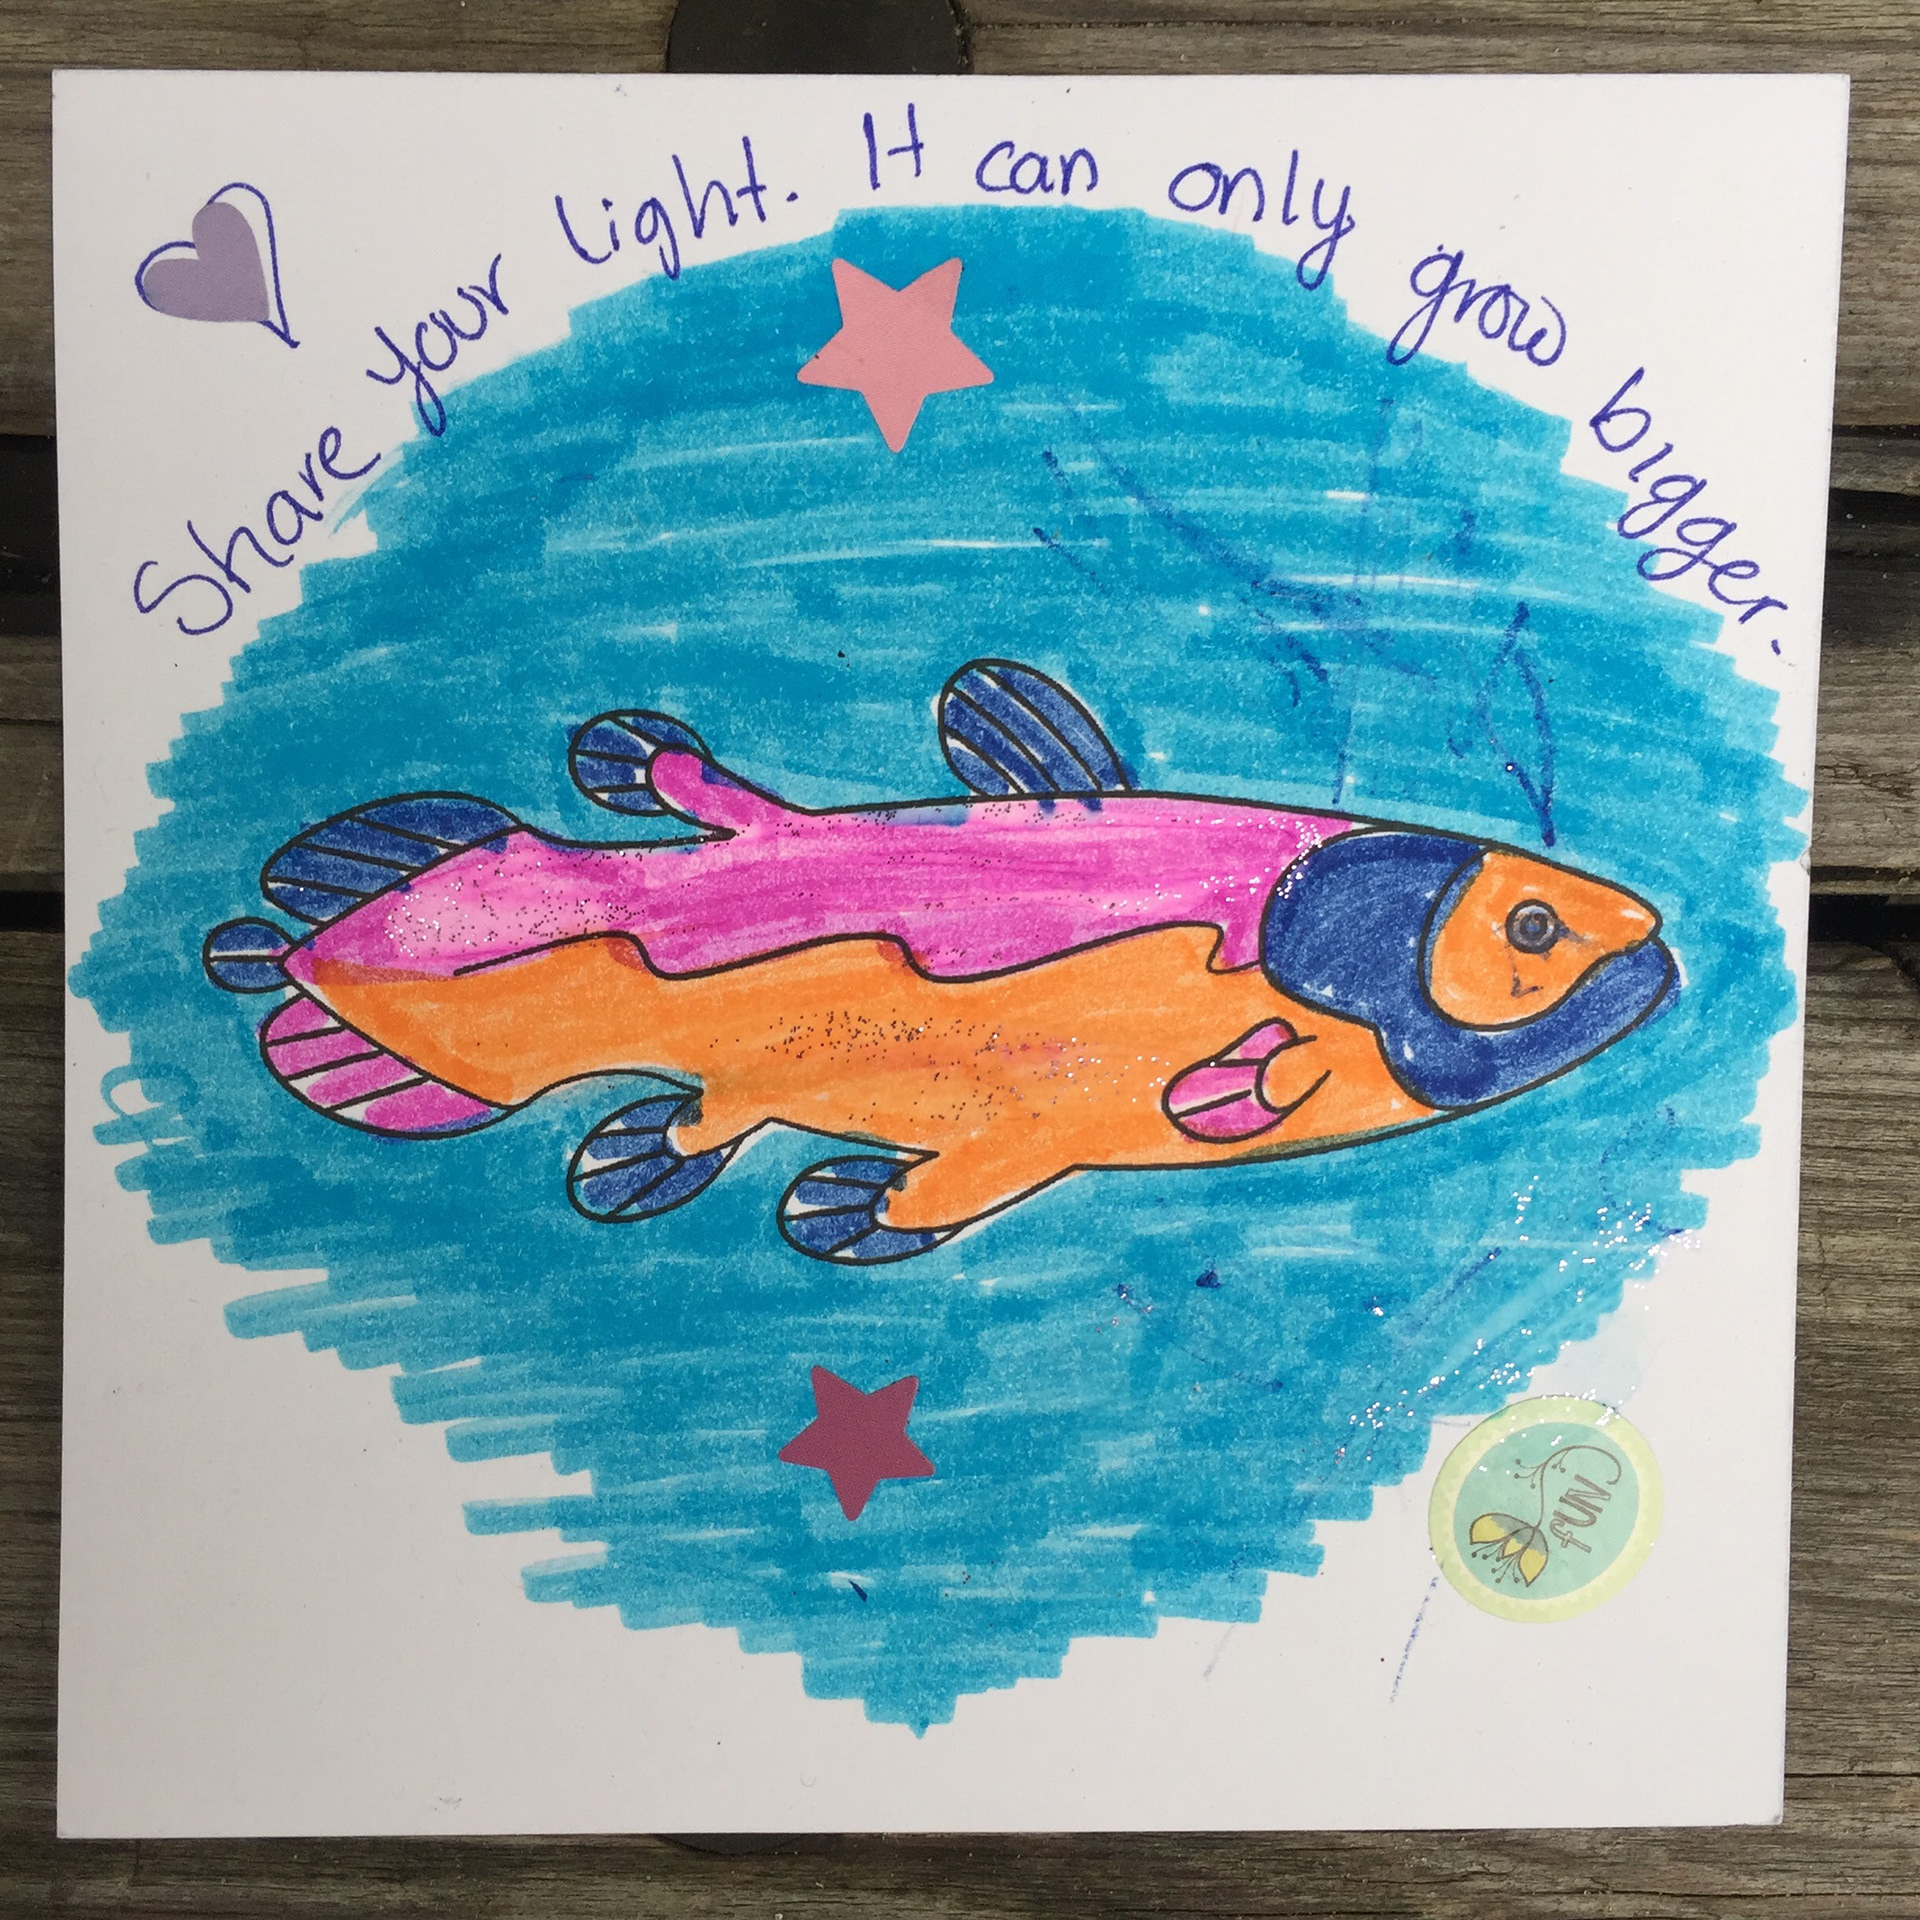 Share your light. It can only grow bigger.
fUN